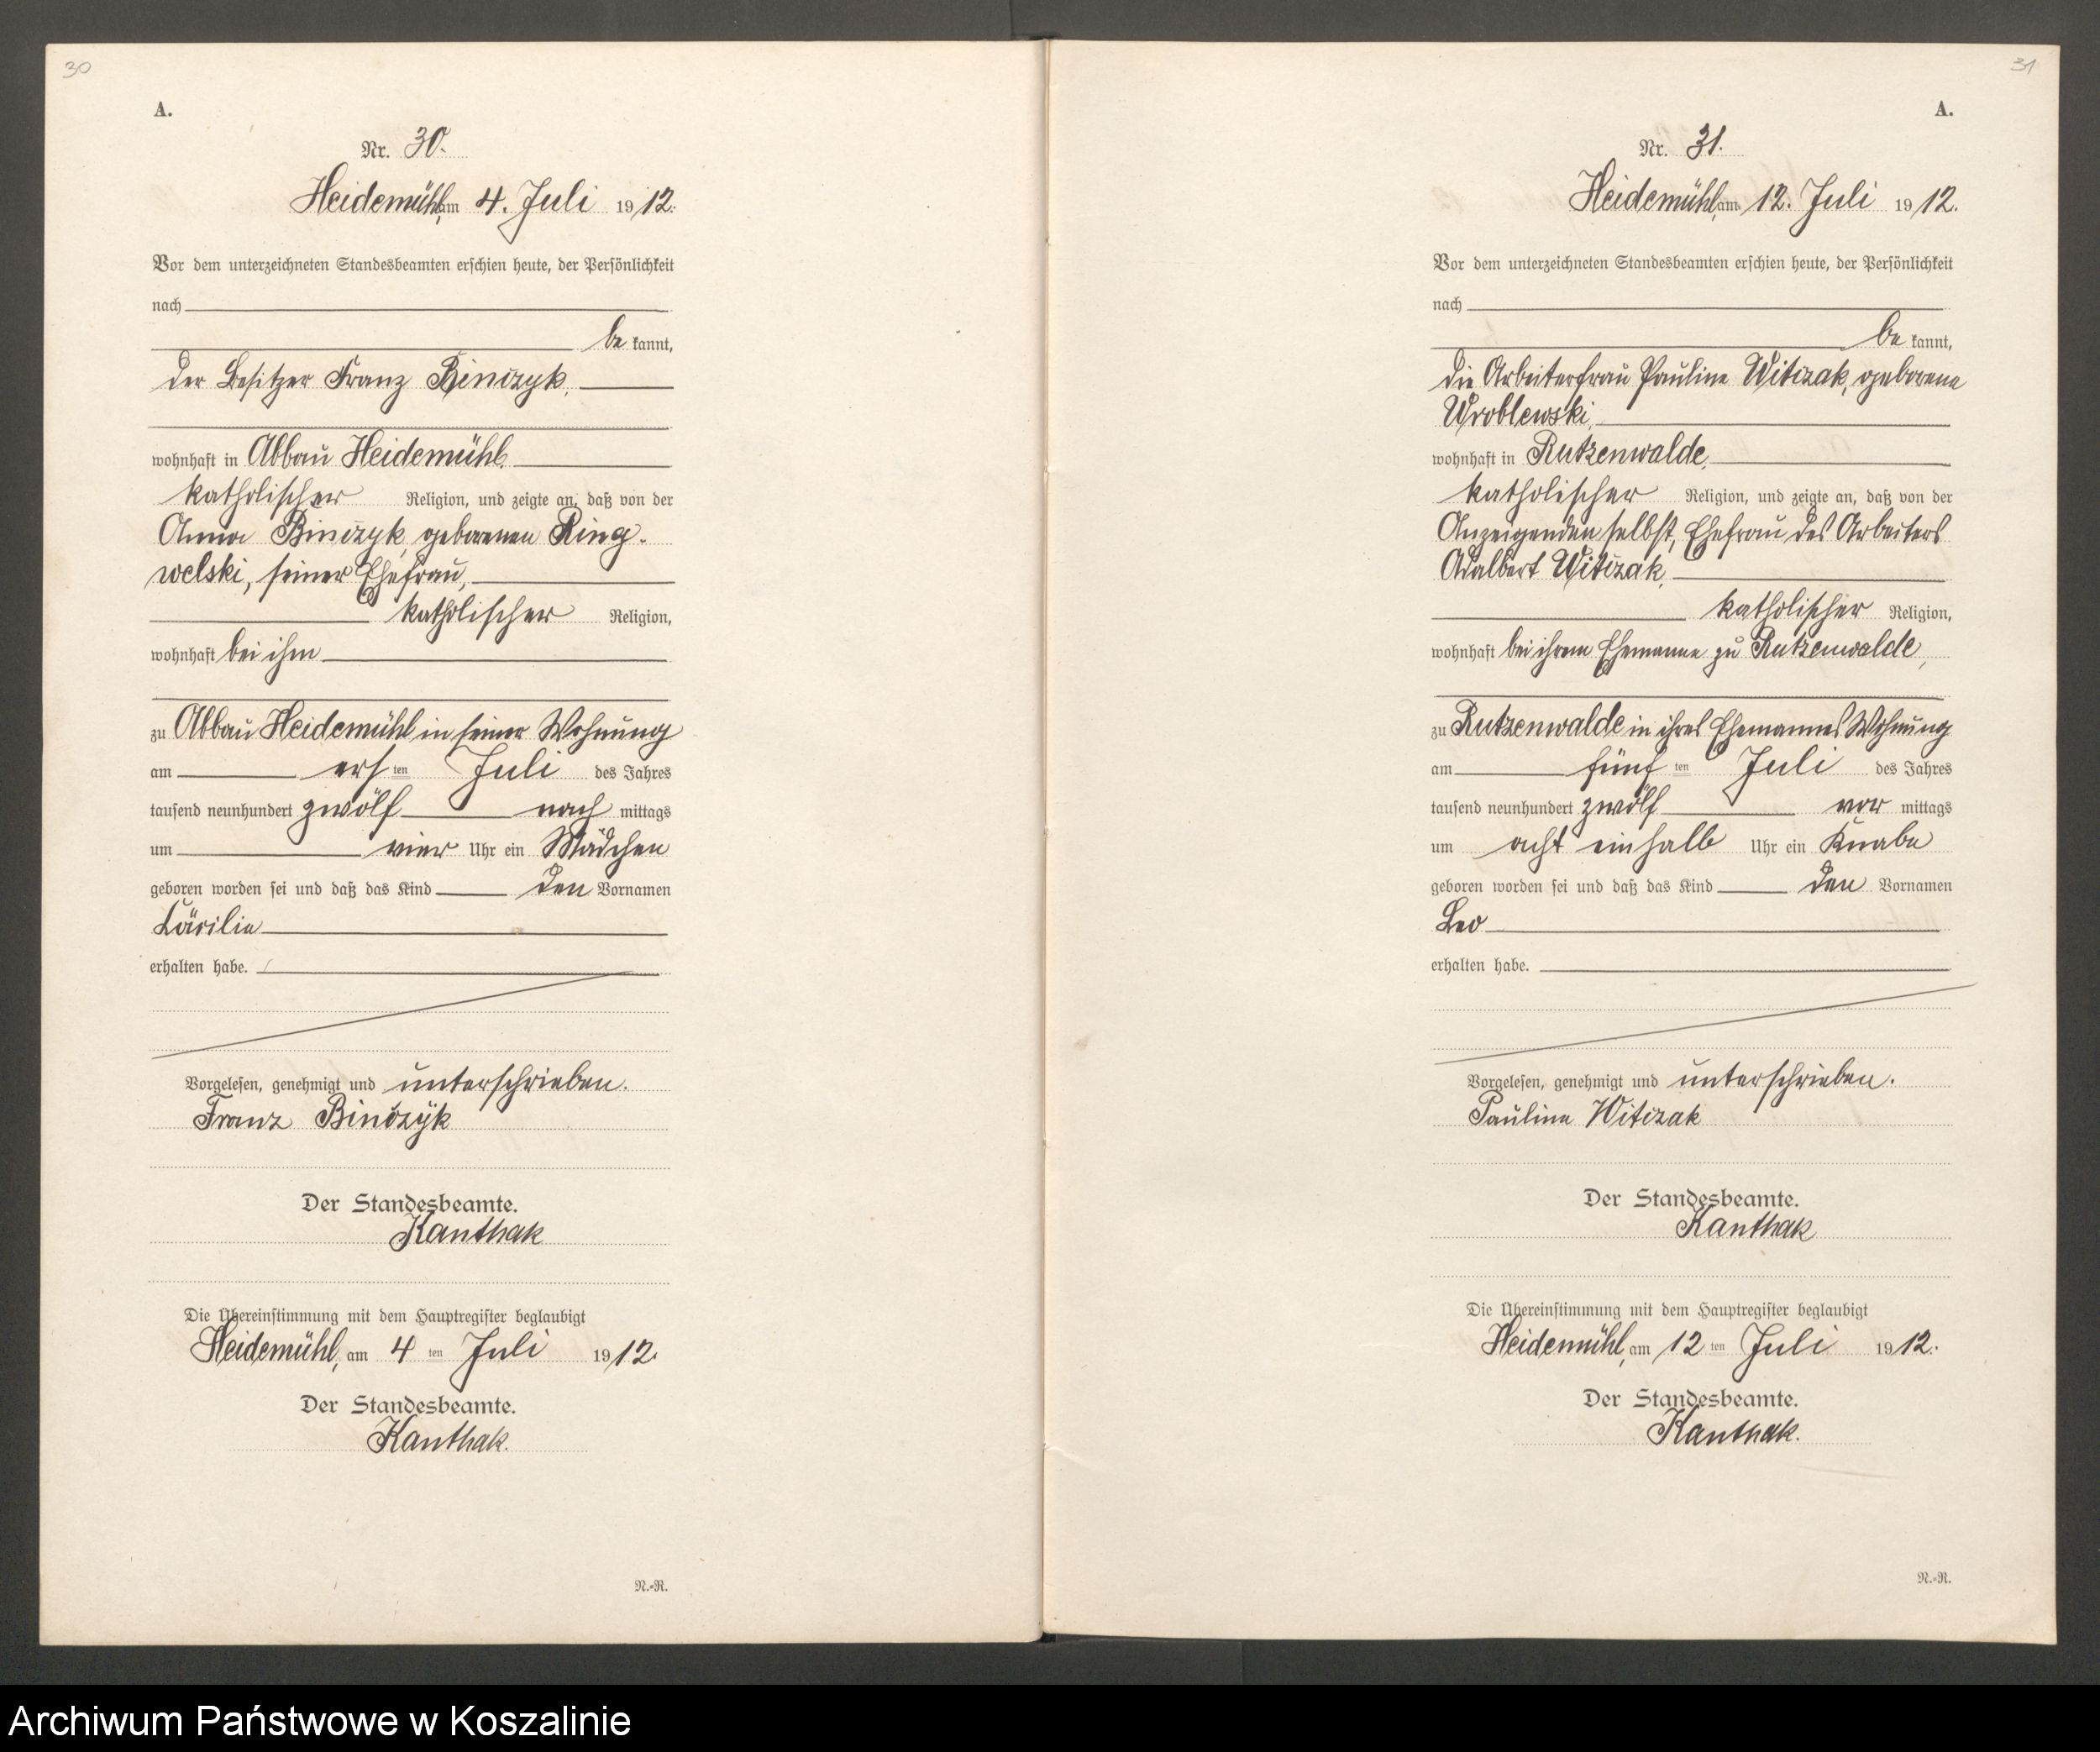 30
A.
Nr. 30.
Heidemühl, am 4. Juli 1912.
Vor dem unterzeichneten Standesbeamten erschien heute, der Persönlichkeit
nach
be kannt,
der Besitzer Franz Binczyk,
wohnhaft in Abbau Heidemühl,
katholischer Religion, und zeigte an, daß von der
Anna Binczyk, geborenen Ring-
welski, seiner Ehefrau,
katholischer Religion,
wohnhaft bei ihm
zu Abbau Heidemühl in seiner Wohnung
am ersten Juli des Jahres
tausend neunhundert zwölf nachmittags
um vier Uhr ein Mädchen
geboren worden sei und daß das Kind den Vornamen
Cäcilie
erhalten habe.
Vorgelesen, genehmigt und unterschrieben.
Franz Binczyk
Der Standesbeamte.
Kanthak
Die Übereinstimmung mit dem Hauptregister beglaubigt
Heidemühl, am 4 ten Juli 1912.
Der Standesbeamte.
Kanthak.
N.-R.
31
A.
Nr. 31.
Heidemühl, am 12. Juli 1912.
Vor dem unterzeichneten Standesbeamten erschien heute, der Persönlichkeit
nach
be kannt,
die Arbeiterfrau Pauline Witczak, geborene
Wroblewski,
wohnhaft in Rutzenwalde,
katholischer Religion, und zeigte an, daß von der
Anzeigenden selbst, Ehefrau des Arbeiters
Adalbert Witczak,
katholischer Religion,
wohnhaft bei ihrem Ehemanne zu Rutzenwalde,
zu Rutzenwalde in ihres Ehemannes Wohnung
am fünften Juli des Jahres
tausend neunhundert zwölf vormittags
um acht einhalb Uhr ein Knabe
geboren worden sei und daß das Kind den Vornamen
Leo
erhalten habe.
Vorgelesen, genehmigt und unterschrieben.
Pauline Witczak
Der Standesbeamte.
Kanthak
Die Übereinstimmung mit dem Hauptregister beglaubigt
Heidemühl, am 12 ten Juli 1912.
Der Standesbeamte.
Kanthak.
N.-R.
Archiwum Państwowe w Koszalinie